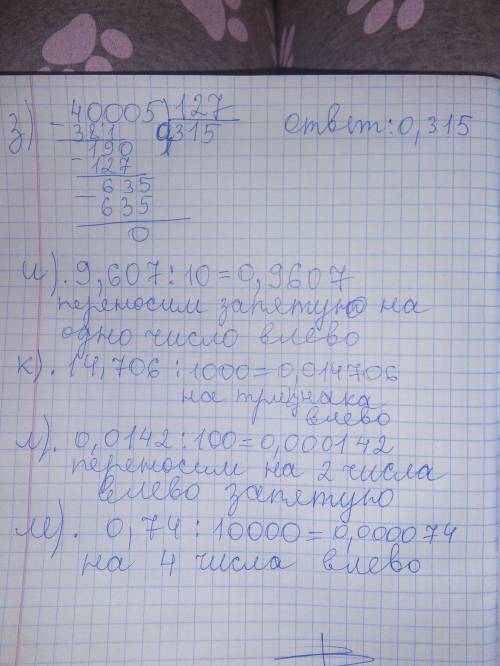 з) 40005 | 127
- 381 0,315 ответ: 0,315
190
- 127
635
- 635
0
и). 9,607 : 10 = 0,9607
переносим запятую на
одно число влево
к). 14,706 : 1000 = 0,014706
на три знака
влево
л). 0,0142 : 100 = 0,000142
переносим на 2 числа
влево запятую
м). 0,74 : 10000 = 0,000074
на 4 числа влево